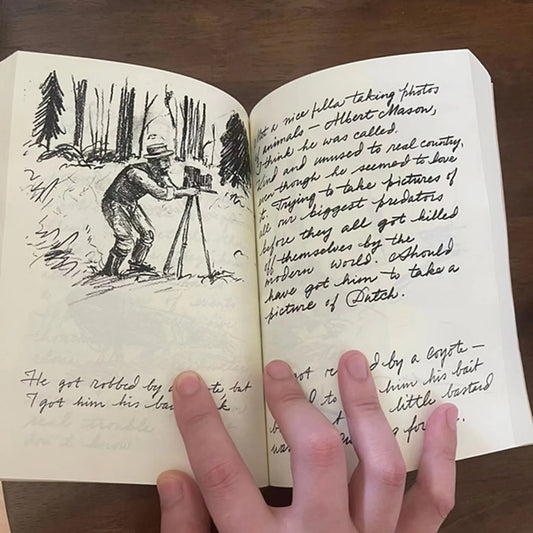 He got robbed by a coyote, but
I got him his back
a nice fella taking photos
animals — Albert Mason,
I think he was called.
Kind and unused to real country,
even though he seemed to love
it. Trying to take pictures of
all our biggest predators
before they all got killed
off themselves by the
modern world. Should
have got him to take a
picture of Dutch.
got by a coyote —
him his bait
little bastard